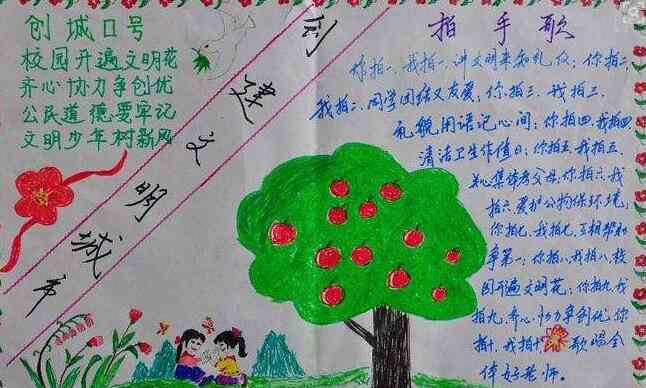 创城口号
校园开遍文明花
齐心协力争创优
公民道德要牢记
文明少年树新风
创建文明城市
拍手歌
你拍一、我拍一、讲文明来和礼仪；你拍二、
我拍二、同学团结又友爱；你拍三、我拍三、
礼貌用语记心间；你拍四、我拍四
清洁卫生作值日；你拍五、我拍五、
关心集体孝父母；你拍六、我
拍六、爱护公物保环境；
你拍七、我拍七、互相帮助
争第一；你拍八、我拍八、校
园开遍文明花；你拍九、我
拍九、齐心协力争创优；你
拍十、我拍十 歌唱全
体好老师。